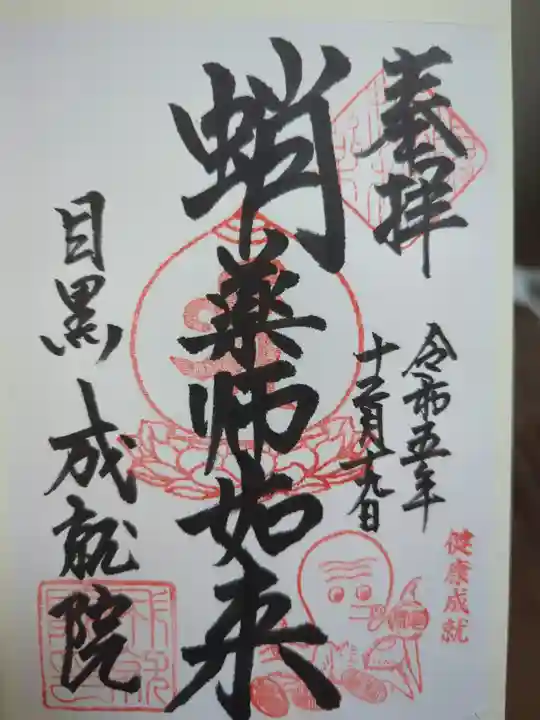 奉拝
令和五年
十二月十九日
健康成就
蛸薬師如来
目黒 成就院